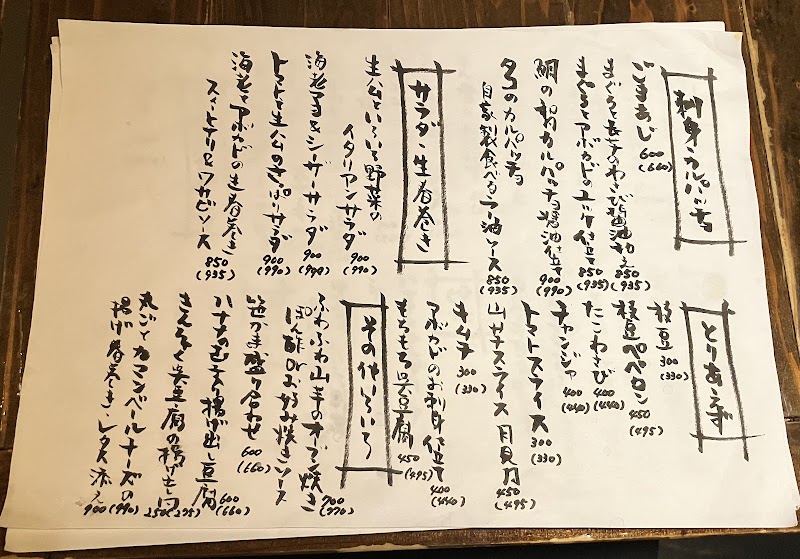 刺身・カルパッチョ
ごまあじ 600 (660)
まぐろと長芋のわさび醤油和え 850 (935)
まぐろとアボカドのユッケ仕立て 850 (935)
鯛の和カルパッチョ醤油仕立て 900 (990)
タコのカルパッチョ
自家製食べるラー油ソース 850 (935)
サラダ・生春巻き
生ハムといろいろ野菜の
イタリアンサラダ 900 (990)
海老マヨ&シーザーサラダ 900 (990)
トマトと生ハムのさっぱりサラダ 900 (990)
海老とアボカドの生春巻き
スイートチリ&ワサビソース 850 (935)
とりあえず
枝豆 300 (330)
枝豆ペペロン 450 (495)
たこわさび 400 (440)
チャンジャ 400 (440)
トマトスライス 300 (330)
山芋スライス 月見 450 (495)
キムチ 300 (330)
アボカドのお刺身仕立て 400 (440)
もちもち呉豆腐 450 (495)
その他いろいろ
ふわふわ山芋のオーブン焼き
ぽん酢orお好み焼きソース 700 (770)
笹かま盛り合わせ 600 (660)
ハナタのむき天揚げ出し豆腐 600 (660)
呉豆腐の揚げ出し 250 (275)
丸ごとカマンベールチーズの
揚げ春巻き・レタス添え 900 (990)